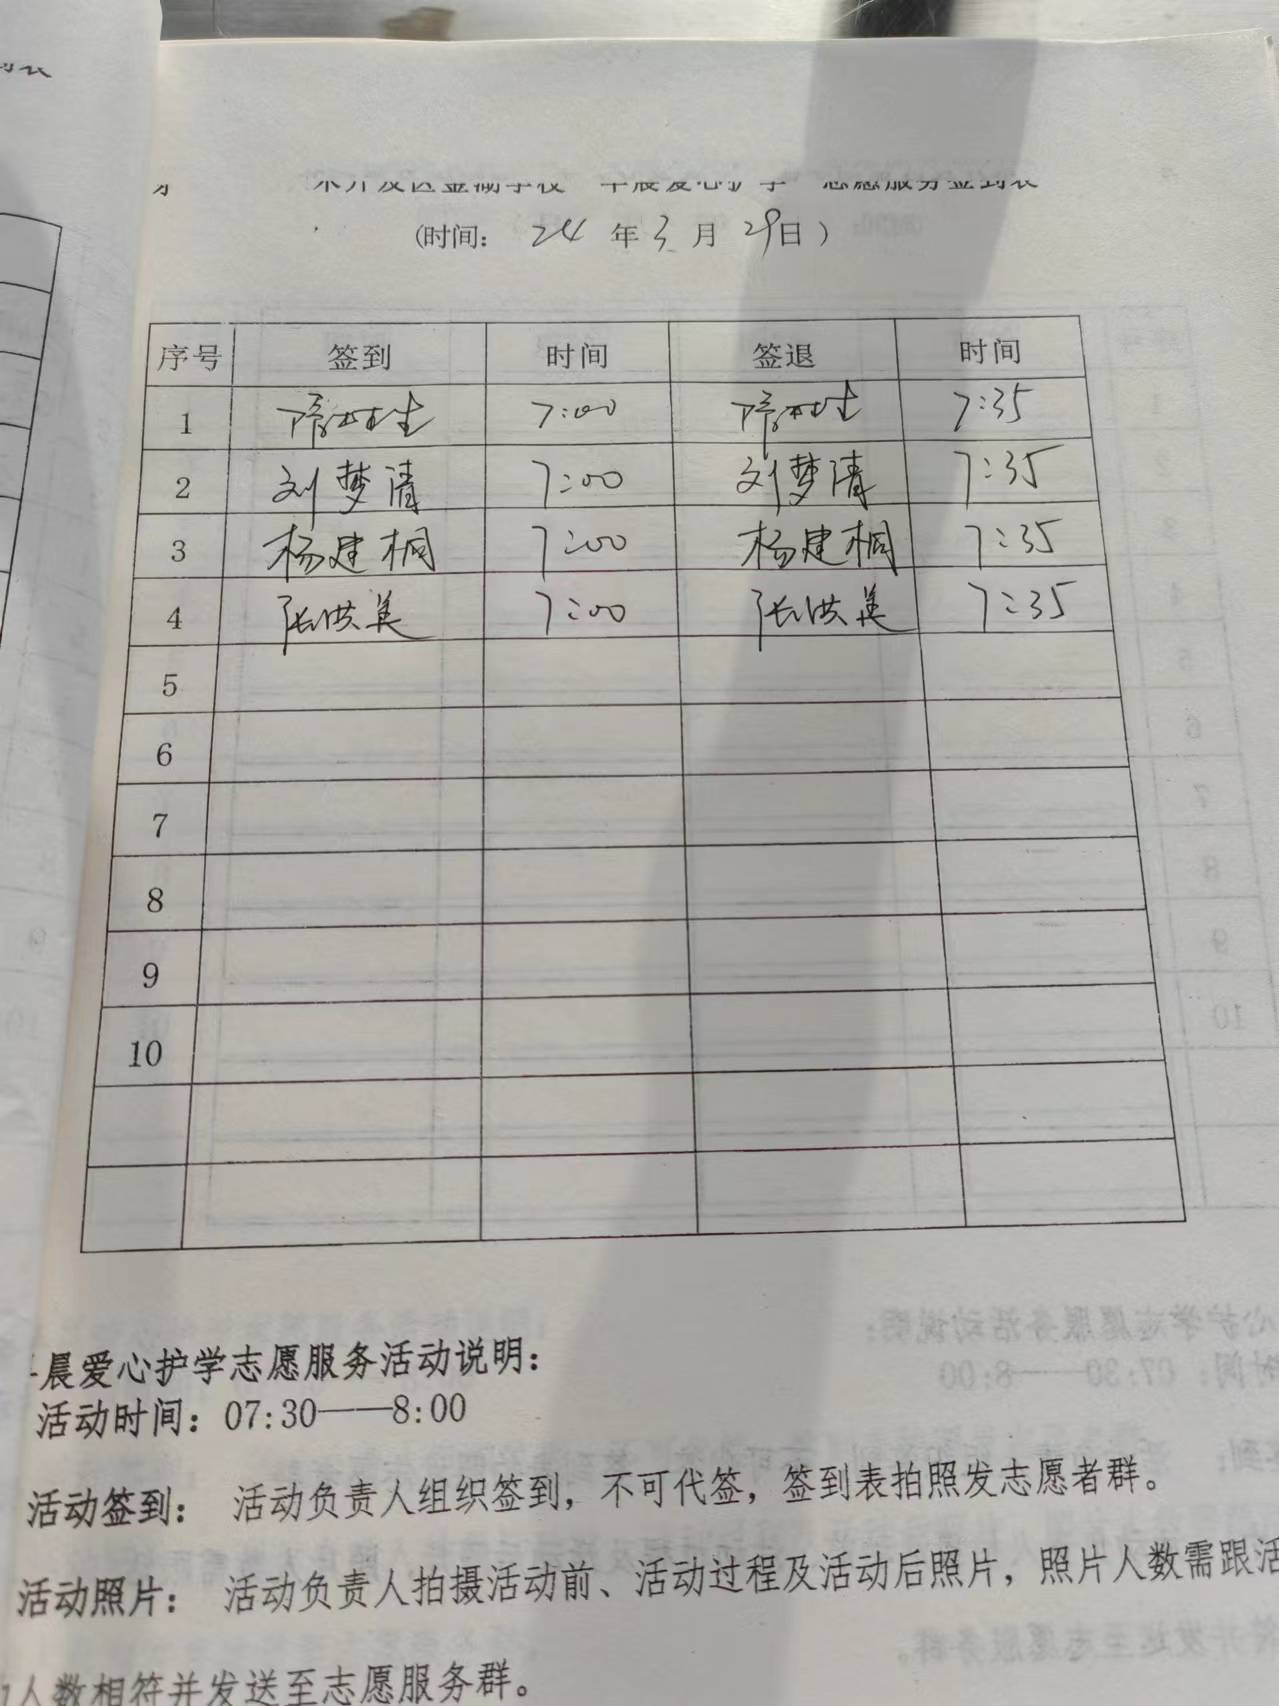 开发区金湖学校"早晨爱心护学"志愿服务签到表
(时间: 24 年 3 月 29日)
序号 签到 时间 签退 时间
1 7:00 7:35
2 刘梦清 7:00 刘梦清 7:35
3 杨建桐 7:00 杨建桐 7:35
4 张洪美 7:00 张洪美 7:35
5
6
7
8
9
10
晨爱心护学志愿服务活动说明:
活动时间: 07:30——8:00
活动签到: 活动负责人组织签到, 不可代签, 签到表拍照发志愿者群。
活动照片: 活动负责人拍摄活动前、活动过程及活动后照片, 照片人数需跟活
人数相符并发送至志愿服务群。